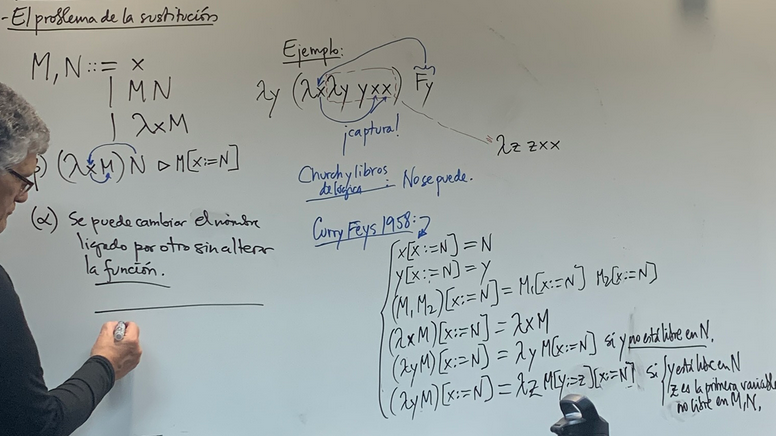 - El problema de la sustitución
M, N ::= x
| M N
| λxM
(λxM)N ▷ M[x:=N]
(α) Se puede cambiar el nombre
ligado por otro sin alterar
la función.
Ejemplo:
λy (λxλy yxx) Fy
¡captura!
λz zxx
Church y libros
de lógica : No se puede.
Curry Feys 1958:
x[x:=N] = N
y[x:=N] = y
(M₁M₂)[x:=N] = M₁[x:=N] M₂[x:=N]
(λxM)[x:=N] = λxM
(λyM)[x:=N] = λyM[x:=N] si y no está libre en N.
(λyM)[x:=N] = λz M[y:=z][x:=N] si
y está libre en N
z es la primera variable
no libre en M, N.